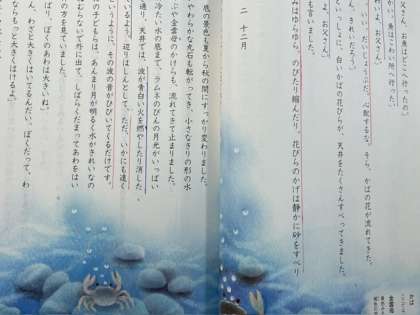 お父さん。お魚はどこへ行ったの。
魚はこわい所へ行った。
よ、お父さん。
だいじょうぶだ。心配するな。そら、かばの花が流れてきた。
ん、きれいだろう。
といっしょに、白いかばの花びらが、天井をたくさんすべってきました。
よ、お父さん。
も言いました。
みはゆらゆら、のびたり縮んだり、花びらのかげは静かに砂をすべり
二 十二月
底の景色も夏から秋の間にすっかり変わりました。
やわらかな丸石も転がってき、小さなきりの形の水
ぶや金雲母のかけらも、流れてきて止まりました。
冷たい水の底まで、ラムネのびんの月光がいっぱい
通り、天井では、波が青白い火を燃やしたり消した
いるよう。辺りはしんとして、ただ、いかにも遠く
いうように、その波の音がひびいてくるだけです。
の子どもらは、あんまり月が明るく水がきれいなの
むらないで外に出て、しばらくだまってあわをはい
の方を見ていました。
ぱり、ぼくのあわは大きいね。
ん、わざと大きくはいてるんだい。ぼくだって、わ
ならもっと大きくはけるよ。
金雲母